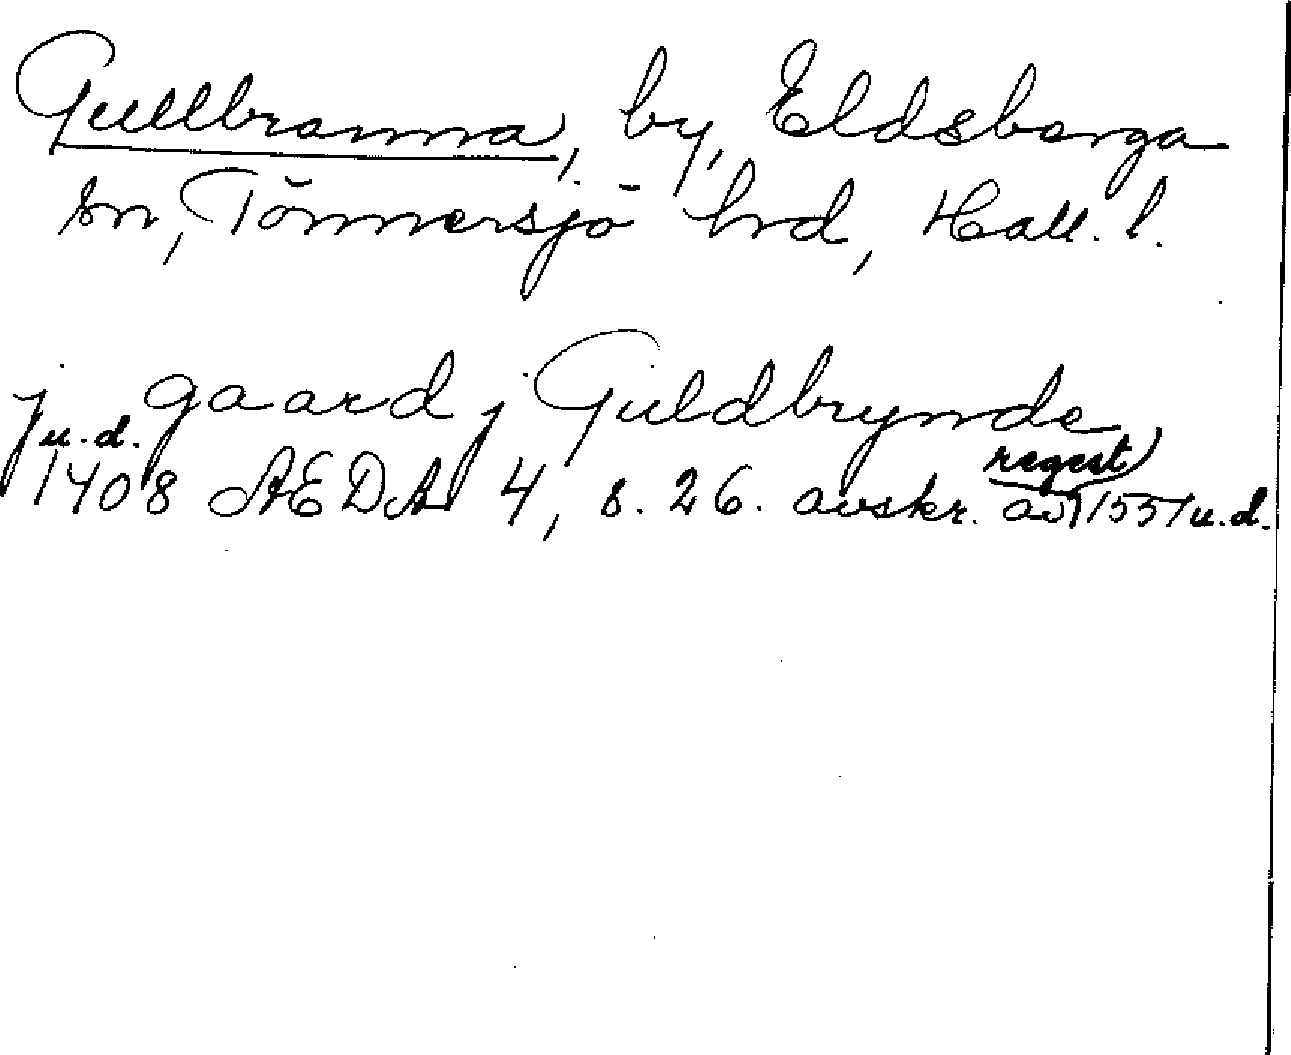 Gullbranna, by, Eldsberga
sn, Tönnersjö hrd, Hall. l.
j gaard j Guldbrynde
u.d. regest
1408 ÆDA 4, s. 26. avskr. av 1551 u.d.